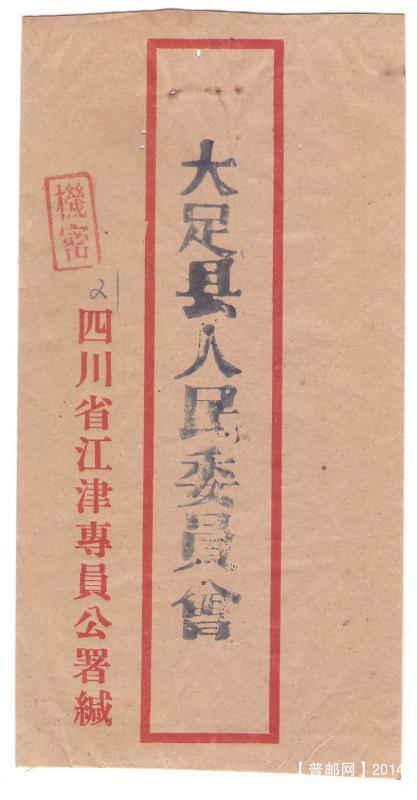 大足县人民委員會
機密
21
四川省江津專員公署緘
【普邮网】2014